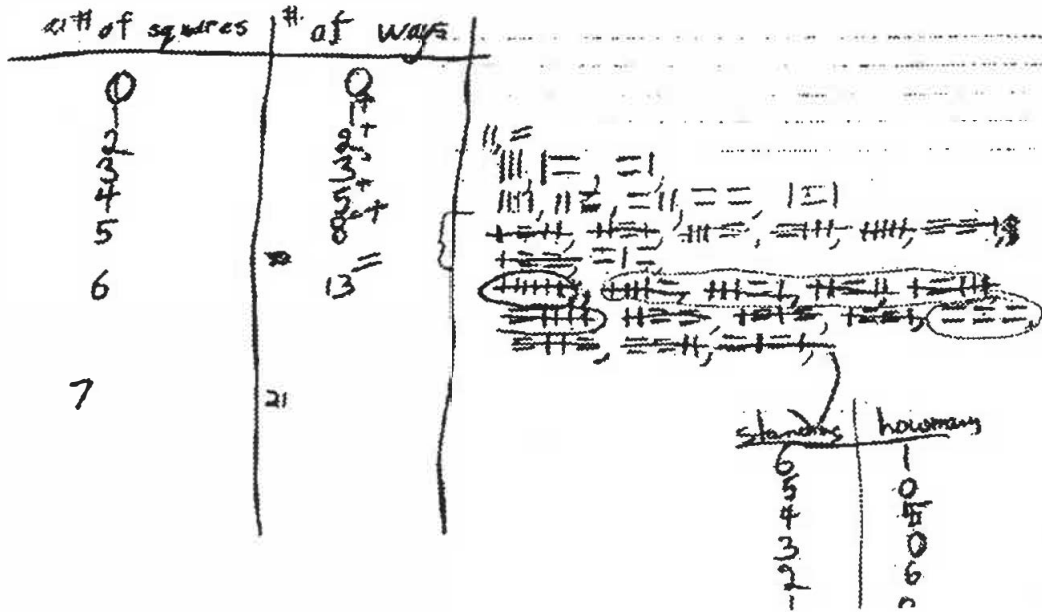 # of squares # of ways
0 0
1 1 +
2 2 +
3 3
4 5 +
5 8 +
=
6 13
7 21
standing how many
6 1
5 0
4
3 0
2 6
1 0